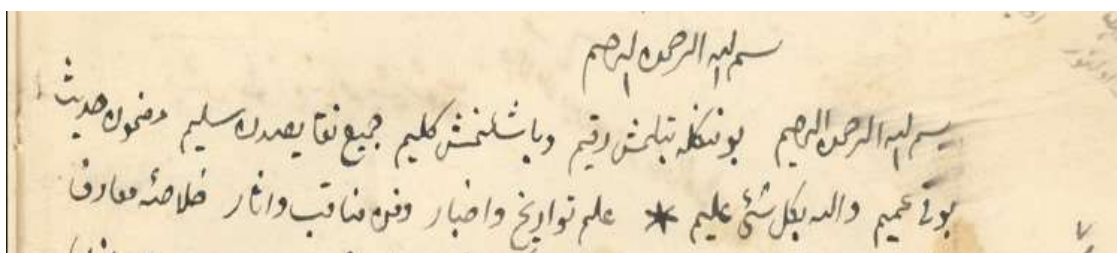 بسم الله الرحمن الرحيم
بسم الله الرحمن الرحيم بونكله يتلمش رقيم وباشلنمش كليم جميع نقايصدن سليم مضمون حديث
بوني عميم والله بكل شئ عليم * علم تواريخ واخبار وفن مناقب واثار خلاصه معارف